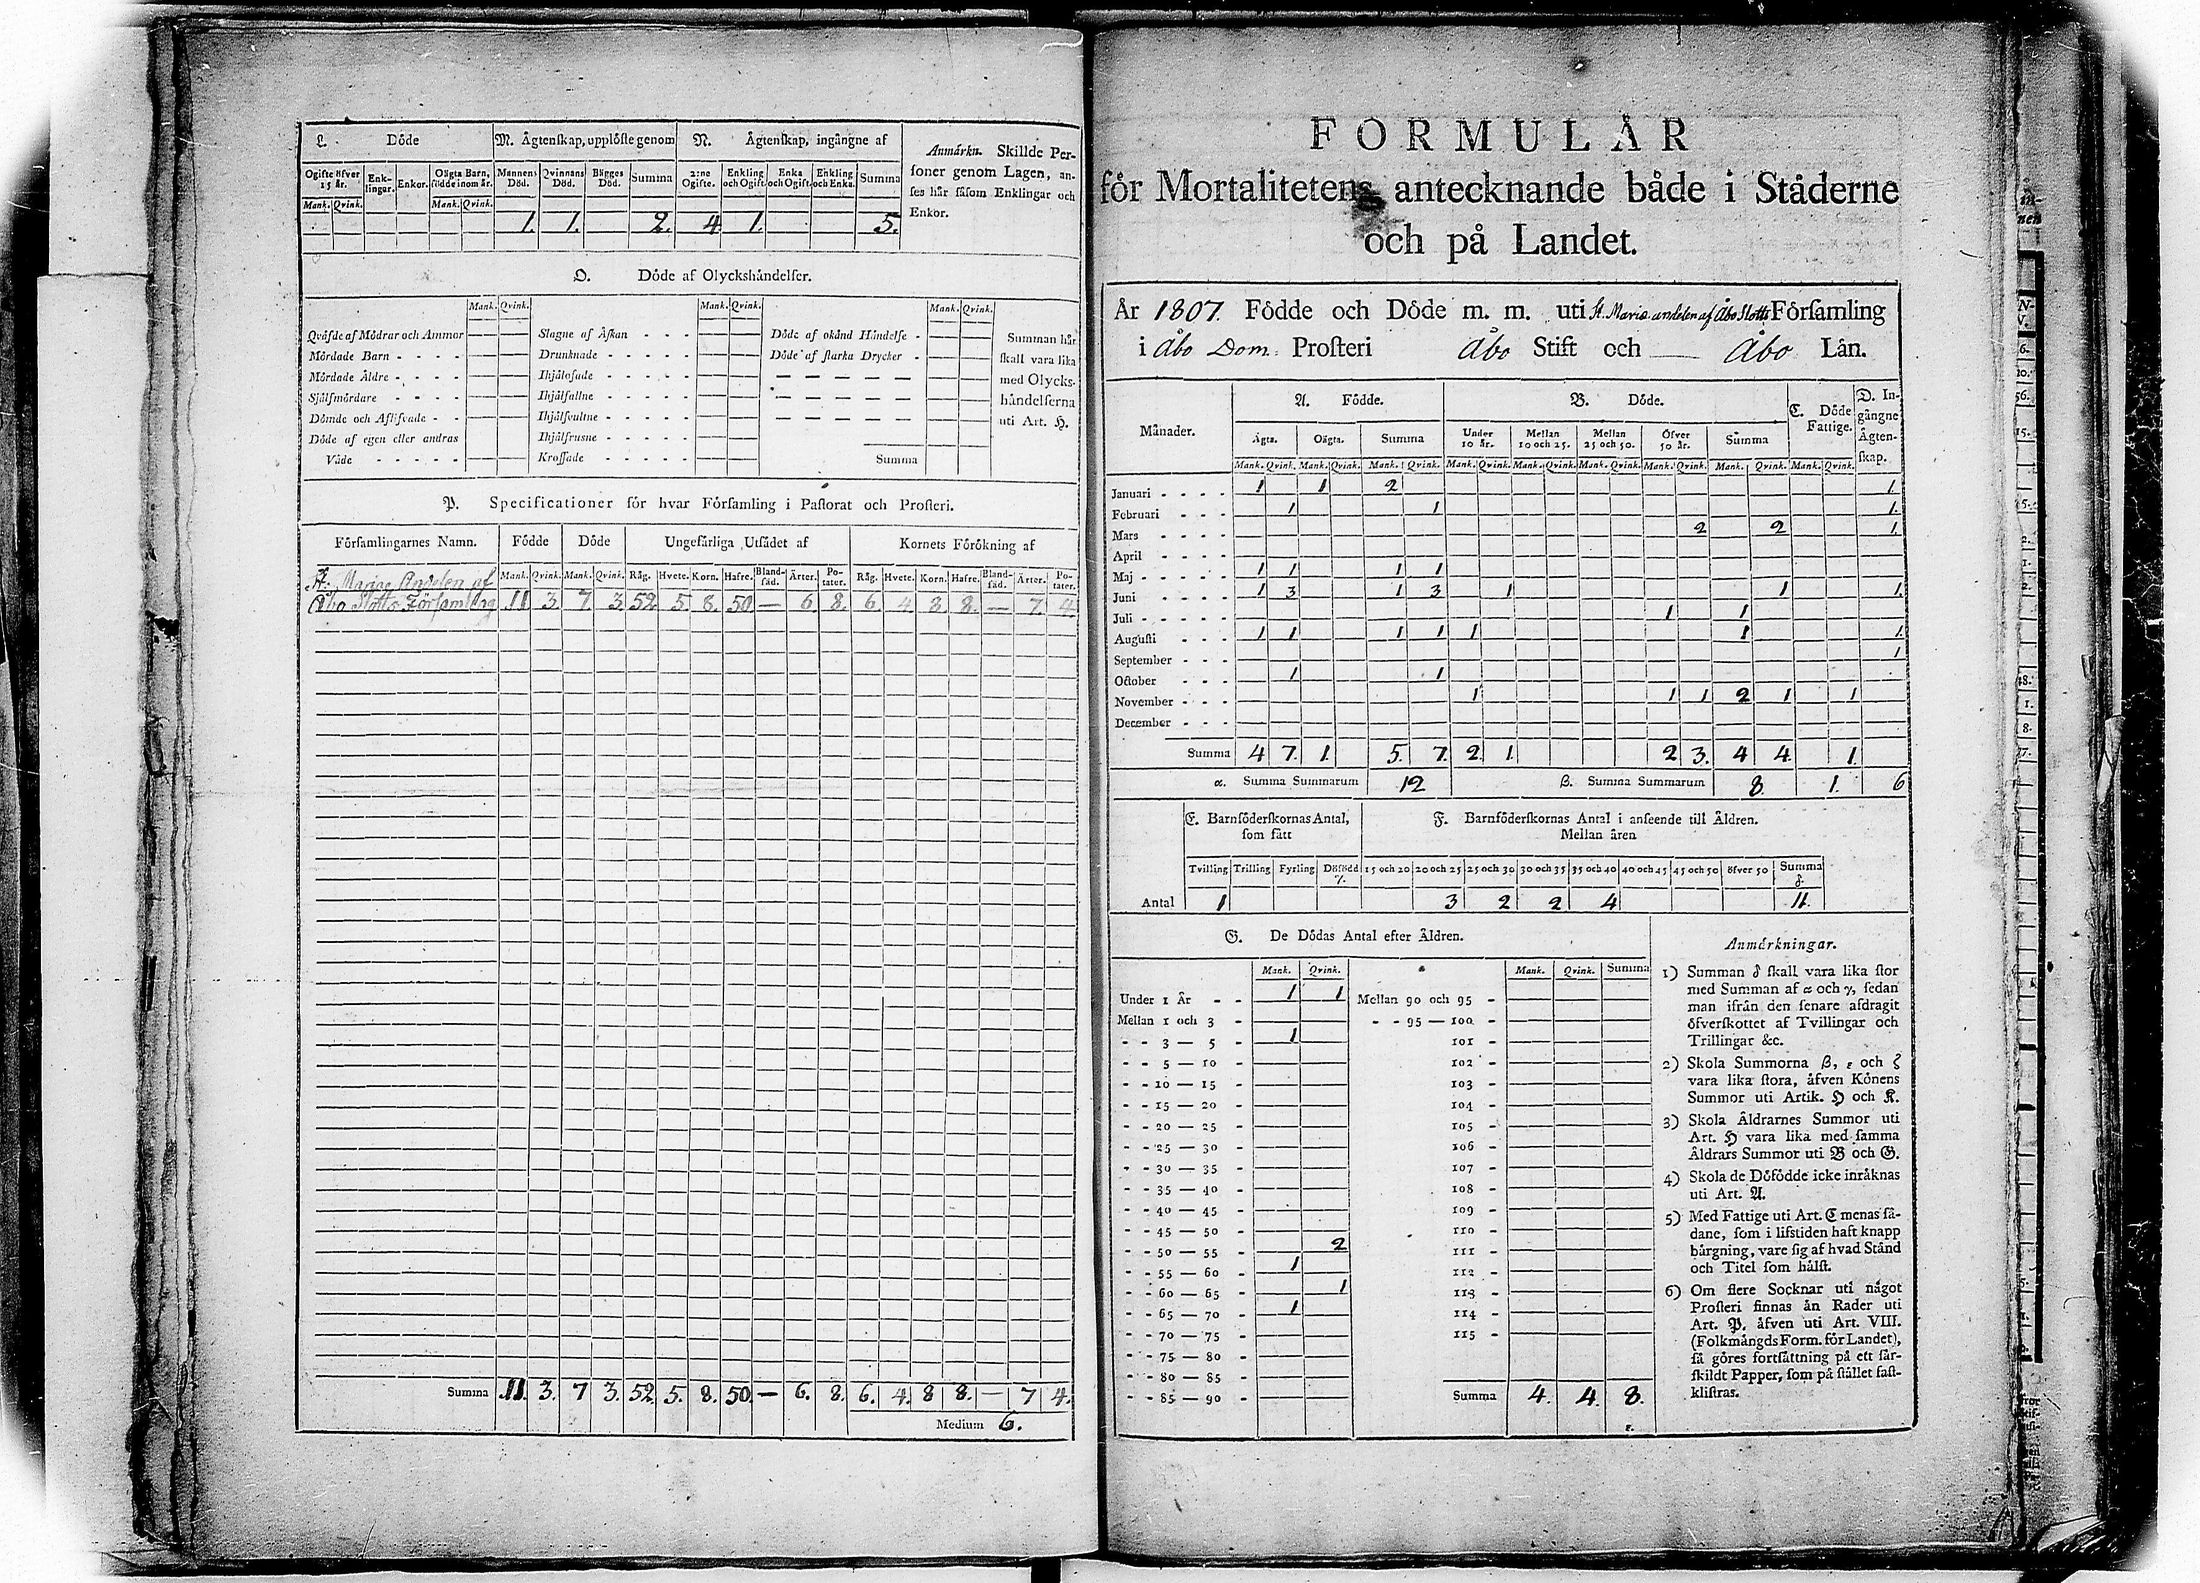 L. Döde
M. Ägtenskap, upplöste genom
N. Ägtenskap, ingångne af
Ogifte öfver 15 år.
Enklingar.
Enkor.
Oägta Barn, födde inom år.
Mannens Död.
Qvinnans Död.
Bägges Död.
Summa
2:ne Ogifte.
Enkling och Ogift.
Enka och Ogift.
Enkling och Enka.
Summa
Mank. Qvink. Mank. Qvink.
1. 1. 2. 4 1. 5.
Anmärkn. Skillde Per-
soner genom Lagen, an-
ses här såsom Enklingar och
Enkor.
O. Döde af Olyckshändelser.
Mank. Qvink. Mank. Qvink. Mank. Qvink.
Qväfde af Mödrar och Ammor
Mördade Barn - - - -
Mördade Äldre - - - -
Själfmördare - - - -
Dömde och Aflifvade - -
Döde af egen eller andras
Våde - - - - -
Slagne af Åskan - - -
Drunknade - - - - -
Ihjälosade - - - - -
Ihjälfallne - - - - -
Ihjälsvultne - - - - -
Ihjälfrusne - - - - -
Krossade - - - - -
Döde af okänd Händelse -
Döde af starka Drycker -
Summa
Summan här
skall vara lika
med Olycks-
händelserna
uti Art. H.
P. Specificationer för hvar Församling i Pastorat och Prosteri.
Församlingarnes Namn. Födde Döde Ungefärliga Utsädet af Kornets Förökning af
Mank. Qvink. Mank. Qvink. Råg. Hvete. Korn. Hafre. Bland-säd. Ärter. Po-tater. Råg. Hvete. Korn. Hafre. Bland-säd. Ärter. Po-tater.
St. Mariae Andelen af
Åbo Slotts Församling 11 3. 7 3. 52. 5. 8. 50 — 6. 8. 6. 4 8 8. — 7. 4.
Summa 11. 3. 7 3. 52. 5. 8. 50. — 6. 8. 6. 4. 8 8. — 7 4.
Medium 6.
FORMULÄR
för Mortalitetens antecknande både i Städerne
och på Landet.
År 1807. Födde och Döde m. m. uti St. Mariæ andelen af Åbo Slotts Församling
i Åbo Dom. Prosteri Åbo Stift och Åbo Län.
Månader.
A. Födde.
B. Döde.
C. Döde Fattige.
D. In-gångne Ägten-skap.
Ägta. Oägta. Summa Under 10 år. Mellan 10 och 25. Mellan 25 och 50. Öfver 50 år. Summa
Mank. Qvink. Mank. Qvink. Mank. Qvink. Mank. Qvink. Mank. Qvink. Mank. Qvink. Mank. Qvink. Mank. Qvink. Mank. Qvink.
Januari - - - - 1 1 2 1.
Februari - - - 1 1 1.
Mars - - - 2 2 1.
April - - -
Maj - - - - - 1 1 1 1
Juni - - - - 1 3 1 3 1 1 1.
Juli - - - - - 1 1
Augusti - - - 1 1 1 1 1 1 1.
September - - - 1
October - - - 1 1
November - - - 1 1 1 2 1 1
December - - -
Summa 4 7. 1. 5. 7. 2. 1. 2 3. 4 4. 1.
α. Summa Summarum 12 β. Summa Summarum 8. 1. 6
E. Barnföderskornas Antal,
som fått
F. Barnföderskornas Antal i anseende till Åldren.
Mellan åren
Tvilling Trilling Fyrling Döfödd γ. 15 och 20 20 och 25 25 och 30 30 och 35 35 och 40 40 och 45 45 och 50 öfver 50 Summa δ.
Antal 1 3 2 2 4 11.
G. De Dödas Antal efter Åldren.
Mank. Qvink. Mank. Qvink. Summa
Under 1 År - - 1 1
Mellan 1 och 3 -
- - 3 — 5 - 1
- - 5 — 10 -
- - 10 — 15 -
- - 15 — 20 -
- - 20 — 25 -
- - 25 — 30 -
- - 30 — 35 -
- - 35 — 40 -
- - 40 — 45 -
- - 45 — 50 -
- - 50 — 55 - 2
- - 55 — 60 - 1
- - 60 — 65 - 1
- - 65 — 70 - 1
- - 70 — 75 -
- - 75 — 80 -
- - 80 — 85 -
- - 85 — 90 -
Mellan 90 och 95 -
- - 95 — 100 -
101 -
102 -
103 -
104 -
105 -
106 -
107 -
108 -
109 -
110 -
111 -
112 -
113 -
114 -
115 -
Summa 4. 4. 8.
ε.
Anmärkningar.
1) Summan δ skall vara lika stor
med Summan af α och γ, sedan
man ifrån den senare afdragit
öfverskottet af Tvillingar och
Trillingar &c.
2) Skola Summorna β, ε och ζ
vara lika stora, äfven Könens
Summor uti Artik. H och K.
3) Skola Åldrarnes Summor uti
Art. H vara lika med samma
Åldrars Summor uti B och G.
4) Skola de Döfödde icke inräknas
uti Art. A.
5) Med Fattige uti Art. C menas så-
dane, som i lifstiden haft knapp
bärgning, vare sig af hvad Stånd
och Titel som hälst.
6) Om flere Socknar uti något
Prosteri finnas än Rader uti
Art. P, äfven uti Art. VIII.
(Folkmängds Form. för Landet),
så göres fortsättning på ett sär-
skildt Papper, som på stället fast-
klistras.